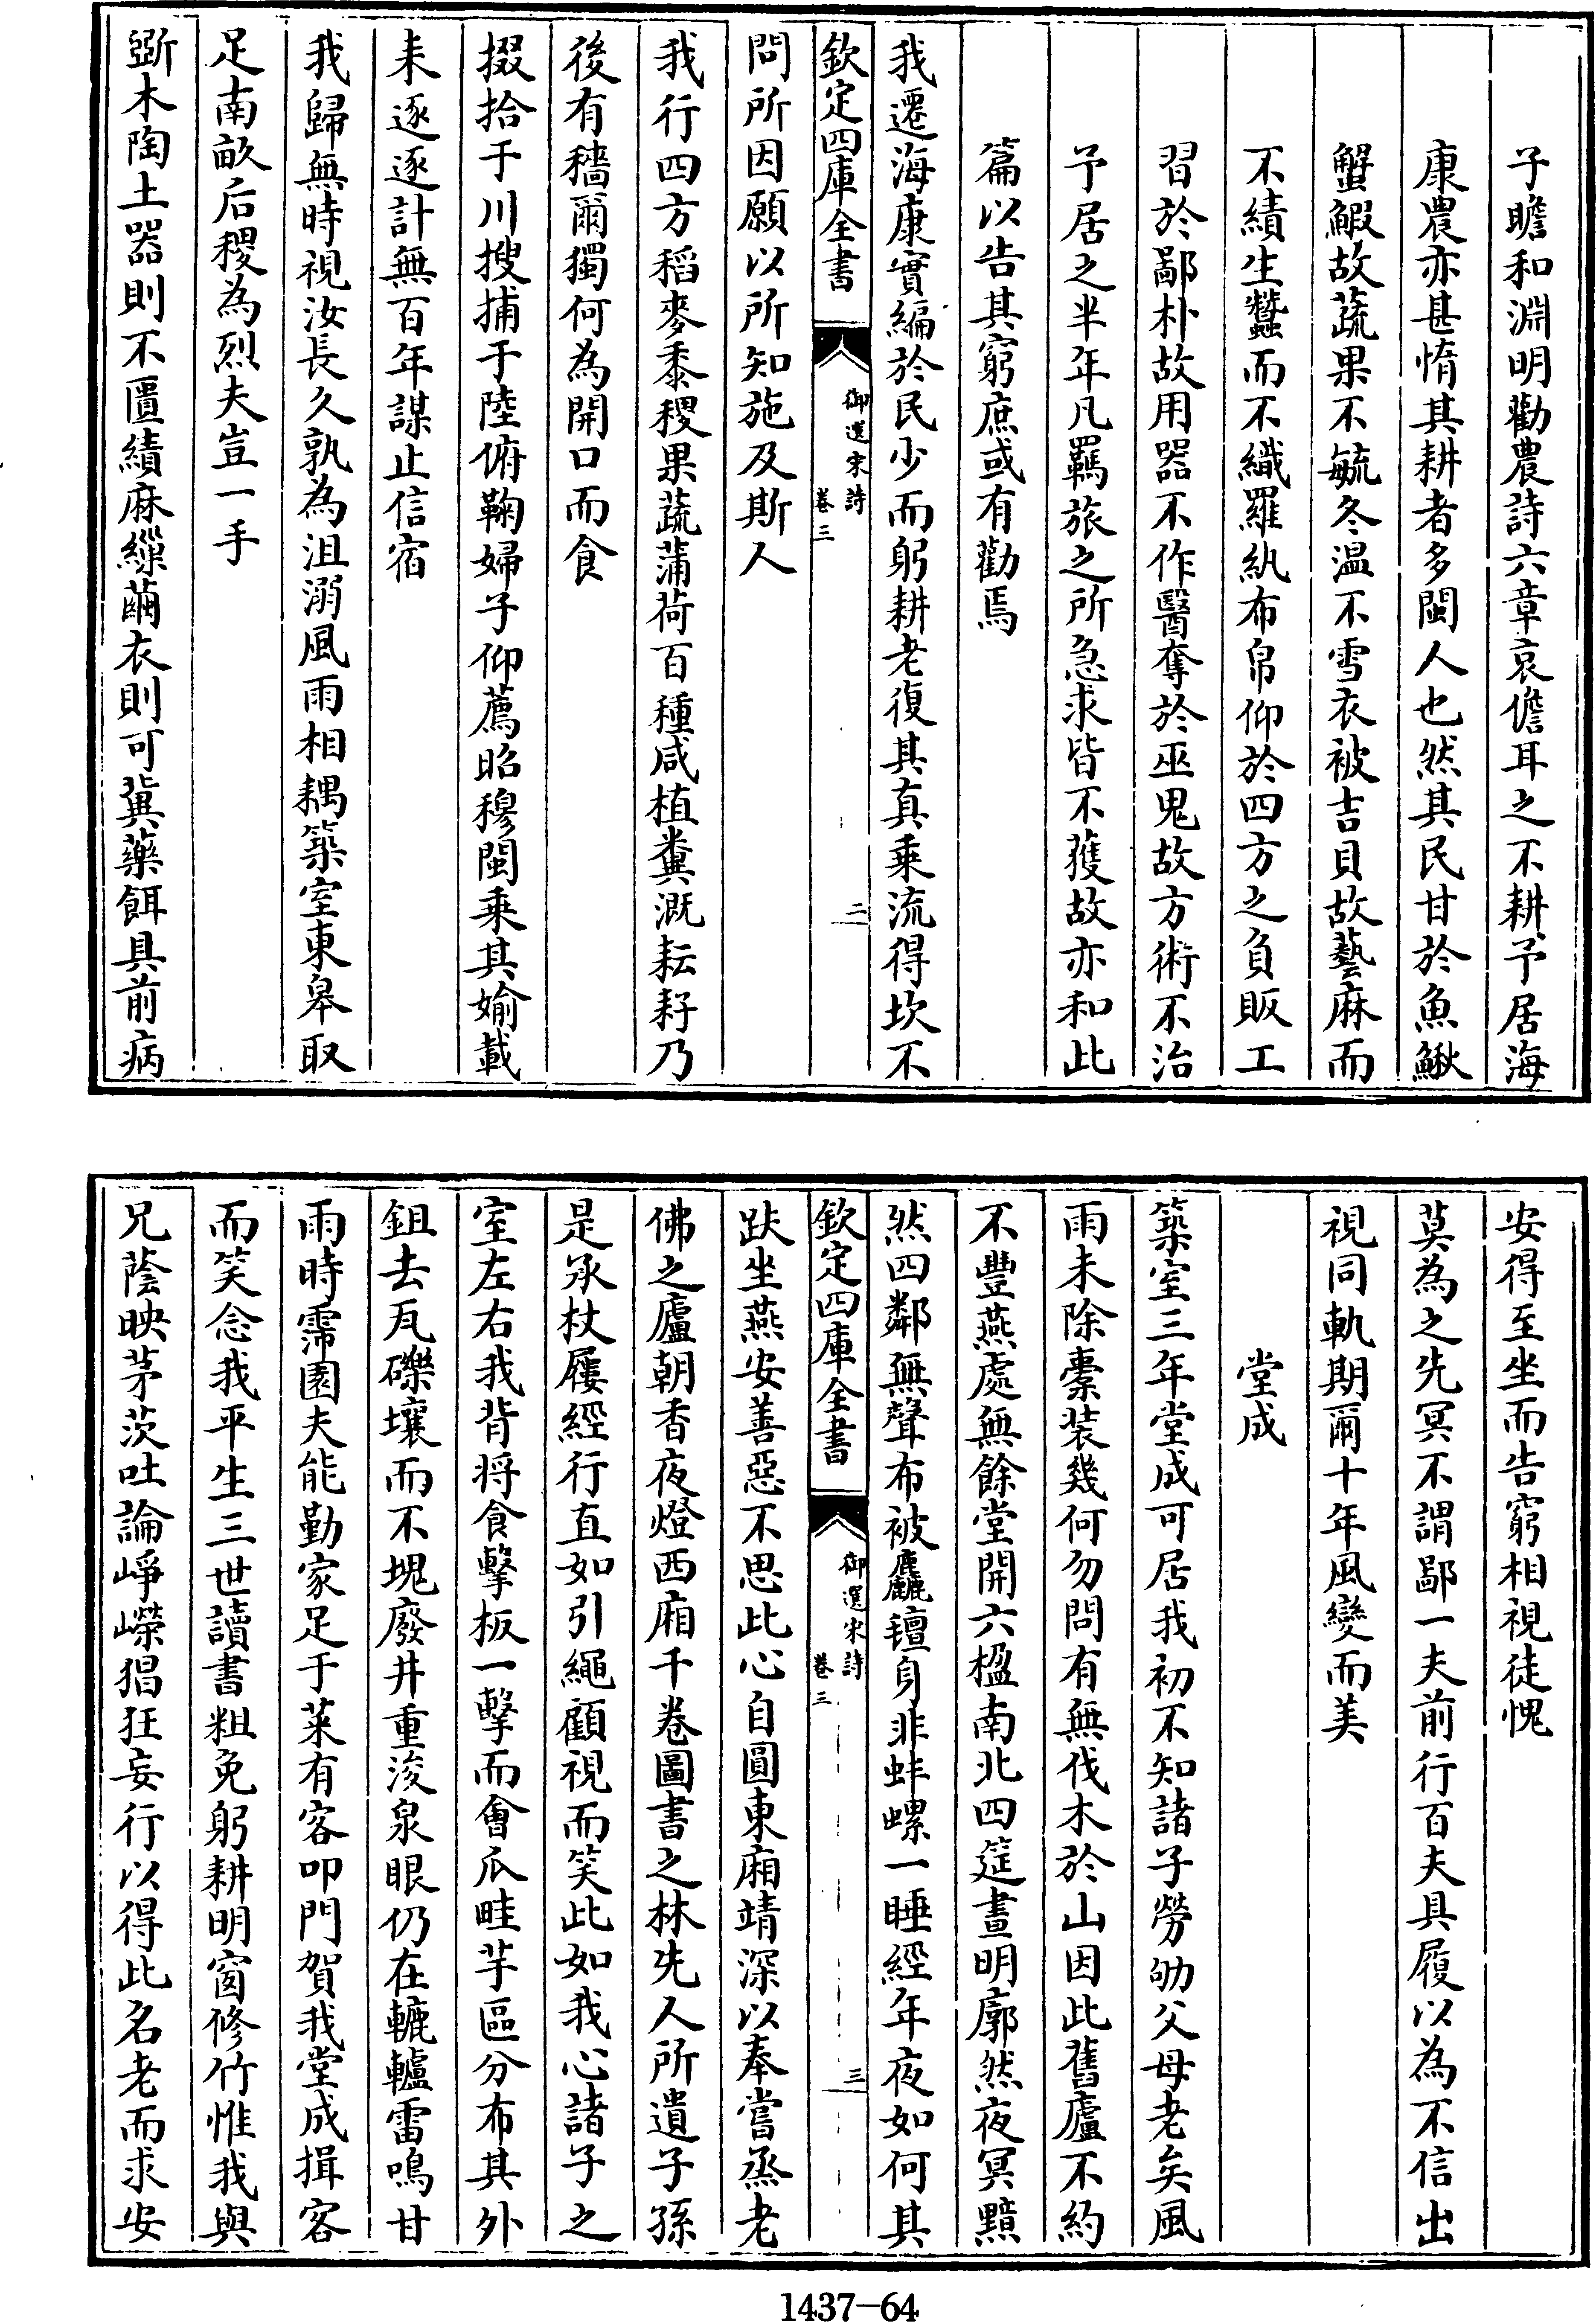 子瞻和淵明勸農詩六章哀儋耳之不耕予居海
康農亦甚惰其耕者多閩人也然其民甘於魚鰍
蟹鰕故蔬果不毓冬溫不雪衣被吉貝故藝麻而
不績生蠶而不織羅紈布帛仰於四方之負販工
習於鄙朴故用器不作醫奪於巫鬼故方術不治
予居之半年凡羈旅之所急求皆不獲故亦和此
篇以告其窮庶或有勸焉
我遷海康實編於民少而躬耕老復其真乘流得坎不
欽定四庫全書
御選宋詩
卷三
二
問所因願以所知施及斯人
我行四方稻麥黍稷果蔬蒲荷百種咸植糞溉耘耔乃
後有穡爾獨何為開口而食
掇拾于川搜捕于陸俯鞠婦子仰薦昭穆閩乘其媮載
耒逐逐計無百年謀止信宿
我歸無時視汝長久孰為沮溺風雨相耦築室東皋取
足南畝后稷為烈夫豈一手
斲木陶土器則不匱績麻繅繭衣則可冀藥餌具前病
安得至坐而告窮相視徒愧
莫為之先冥不謂鄙一夫前行百夫具履以為不信出
視同軌期爾十年風變而美
堂成
築室三年堂成可居我初不知諸子勞劬父母老矣風
雨未除橐裝幾何勿問有無伐木於山因此舊廬不約
不豐燕處無餘堂開六楹南北四筵晝明廓然夜冥黯
然四鄰無聲布被麤氊身非蚌螺一睡經年夜如何其
欽定四庫全書
御選宋詩
卷三
三
趺坐燕安善惡不思此心自圓東廂靖深以奉嘗烝老
佛之廬朝香夜燈西廂千卷圖書之林先人所遺子孫
是承杖屨經行直如引繩顧視而笑此如我心諸子之
室左右我背將食擊板一擊而會瓜畦芋區分布其外
鉏去瓦礫壤而不塊廢井重浚泉眼仍在轆轤雷鳴甘
雨時霈園夫能勤家足于菜有客叩門賀我堂成揖客
而笑念我平生三世讀書粗免躬耕明窗修竹惟我與
兄蔭映茅茨吐論崢嶸猖狂妄行以得此名老而求安
1437—64